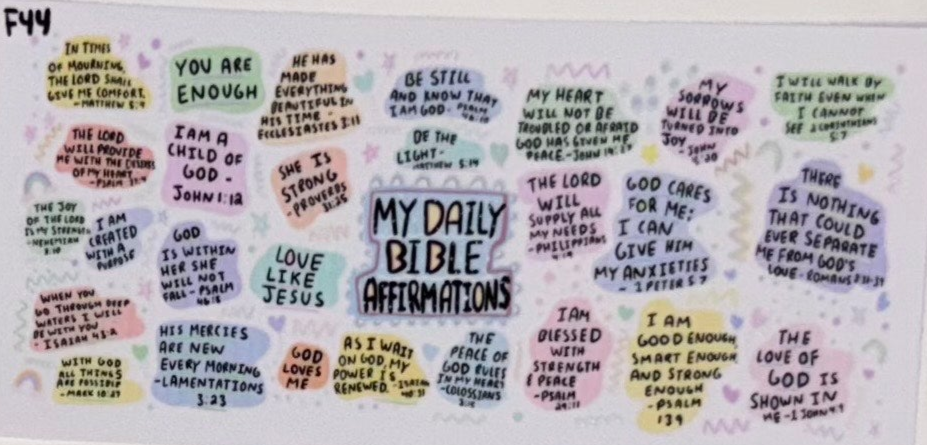 F44
IN TIMES
OF MOURNING,
THE LORD SHALL
GIVE ME COMFORT.
- MATTHEW 5:4
YOU ARE
ENOUGH
HE HAS
MADE
EVERYTHING
BEAUTIFUL IN
HIS TIME -
ECCLESIASTES 3:11
BE STILL
AND KNOW THAT
I AM GOD - PSALM
46:10
MY HEART
WILL NOT BE
TROUBLED OR AFRAID
GOD HAS GIVEN ME
PEACE. - JOHN 14:27
MY
SORROWS
WILL BE
TURNED INTO
JOY
- JOHN
I WILL WALK BY
FAITH EVEN WHEN
I CANNOT
SEE 2 CORINTHIANS
5:7
THE LORD
WILL PROVIDE
ME WITH THE DESIRES
OF MY HEART
- PSALM
I AM A
CHILD OF
GOD -
JOHN 1:12
SHE IS
STRONG
- PROVERBS
31:25
BE THE
LIGHT -
MATTHEW 5:14
THE JOY
OF THE LORD
IS MY STRENGTH
- NEHEMIAH
8:10
I AM
CREATED
WITH A
PURPOSE
GOD
IS WITHIN
HER SHE
WILL NOT
FALL - PSALM
46:5
LOVE
LIKE
JESUS
MY DAILY
BIBLE
AFFIRMATIONS
THE LORD
WILL
SUPPLY ALL
MY NEEDS
- PHILIPPIANS
4:19
GOD CARES
FOR ME;
I CAN
GIVE HIM
MY ANXIETIES
- 1 PETER 5:7
THERE
IS NOTHING
THAT COULD
EVER SEPARATE
ME FROM GOD'S
LOVE - ROMANS
WHEN YOU
GO THROUGH DEEP
WATERS I WILL
BE WITH YOU
- ISAIAH 43:2
WITH GOD
ALL THINGS
ARE POSSIBLE
- MARK 10:27
HIS MERCIES
ARE NEW
EVERY MORNING
- LAMENTATIONS
3:23
GOD
LOVES
ME
AS I WAIT
ON GOD, MY
POWER IS
RENEWED. - ISAIAH
40:31
THE
PEACE OF
GOD RULES
IN MY HEART
- COLOSSIANS
3:15
I AM
BLESSED
WITH
STRENGTH
& PEACE
- PSALM
29:11
I AM
GOOD ENOUGH,
SMART ENOUGH
AND STRONG
ENOUGH
- PSALM
139
THE
LOVE OF
GOD IS
SHOWN IN
ME - 1 JOHN 4:9